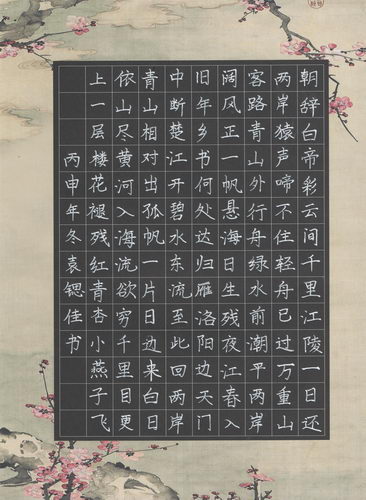 朝辞白帝彩云间千里江陵一日还
两岸猿声啼不住轻舟已过万重山
客路青山外行舟绿水前潮平两岸
阔风正一帆悬海日生残夜江春入
旧年乡书何处达归雁洛阳边天门
中断楚江开碧水东流至此回两岸
青山相对出孤帆一片日边来白日
依山尽黄河入海流欲穷千里目更
上一层楼花褪残红青杏小燕子飞
丙申年冬袁锶佳书